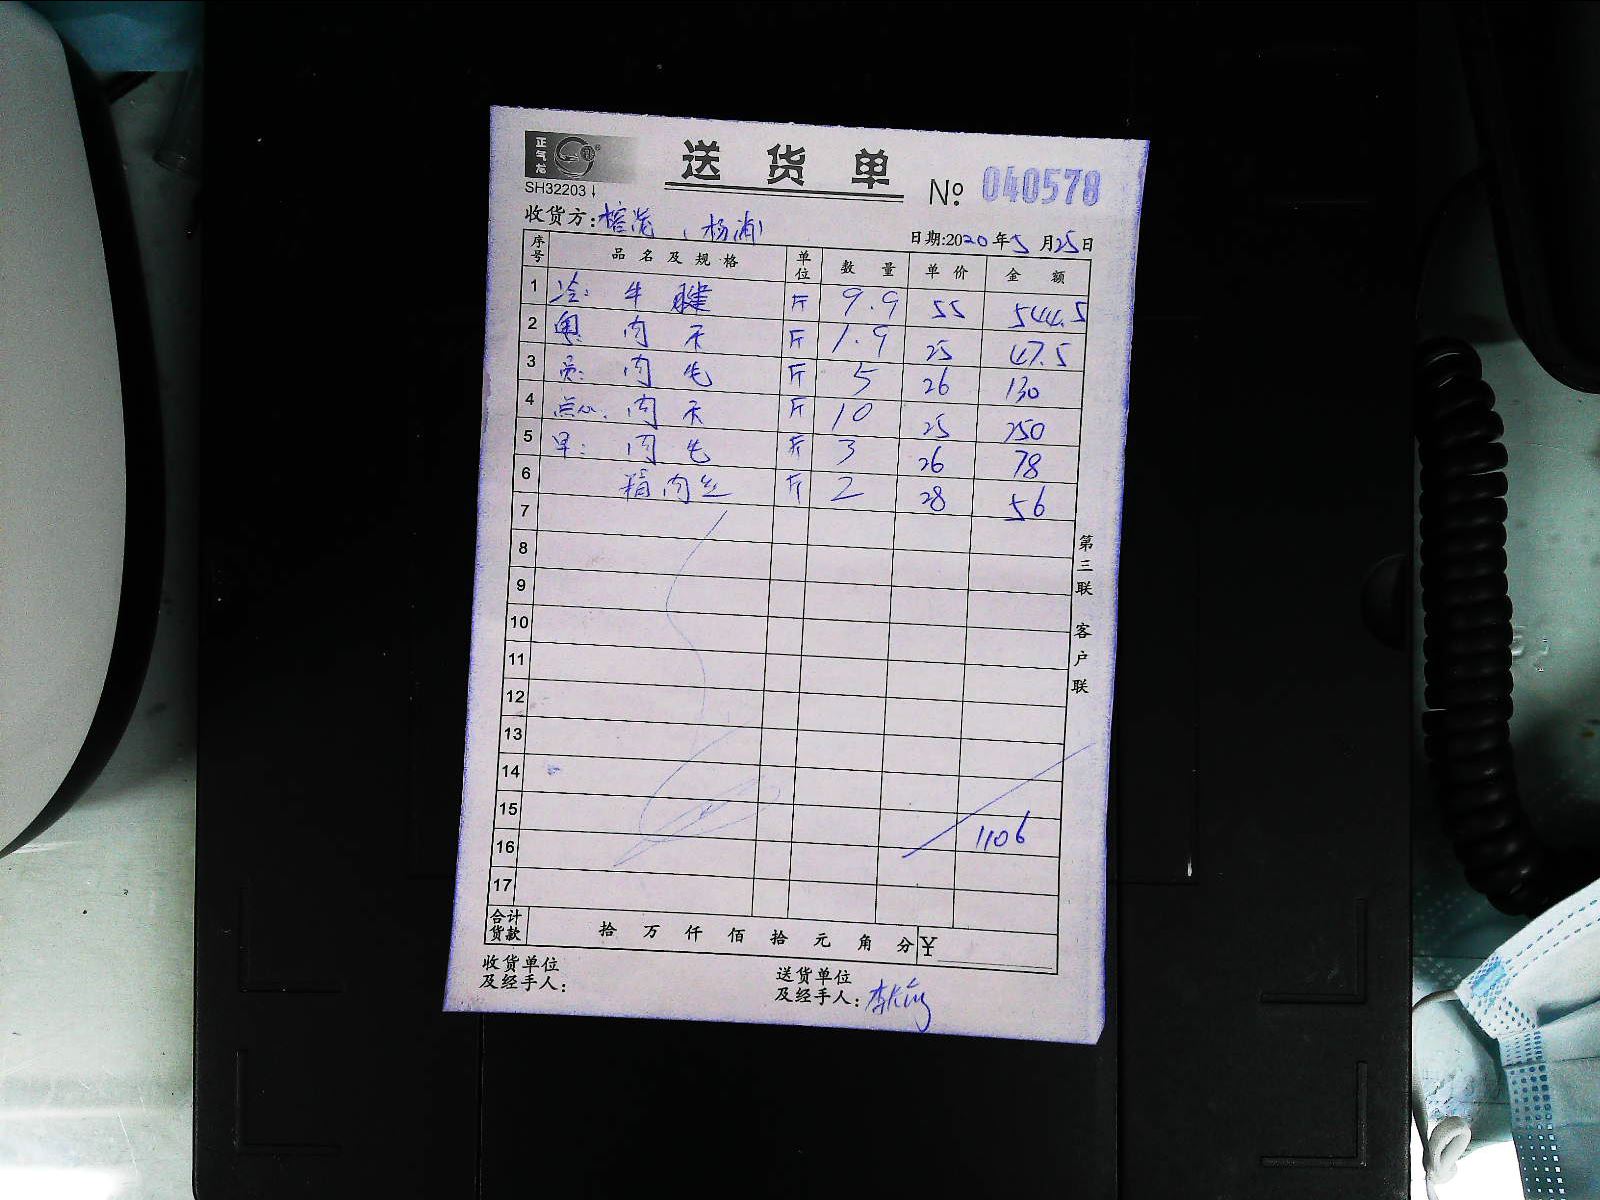 正气龙
送货单
SH32203
№ 040578
收货方: 榕港 (杨浦)
日期:2020年5月25日
序号 品名及规格 单位 数量 单价 金额
1 冷: 牛腱 斤 9.9 55 544.5
2 肉天 斤 1.9 25 47.5
3 员: 肉毛 斤 5 26 130
4 点心. 肉天 斤 10 25 250
5 早: 肉毛 斤 3 26 78
6 精肉丝 斤 2 28 56
7
8
9
10
11
12
13
14
15 1106
16
17
第三联 客户联
合计货款 拾万仟佰拾元角分 ¥
收货单位及经手人:
送货单位及经手人: 李